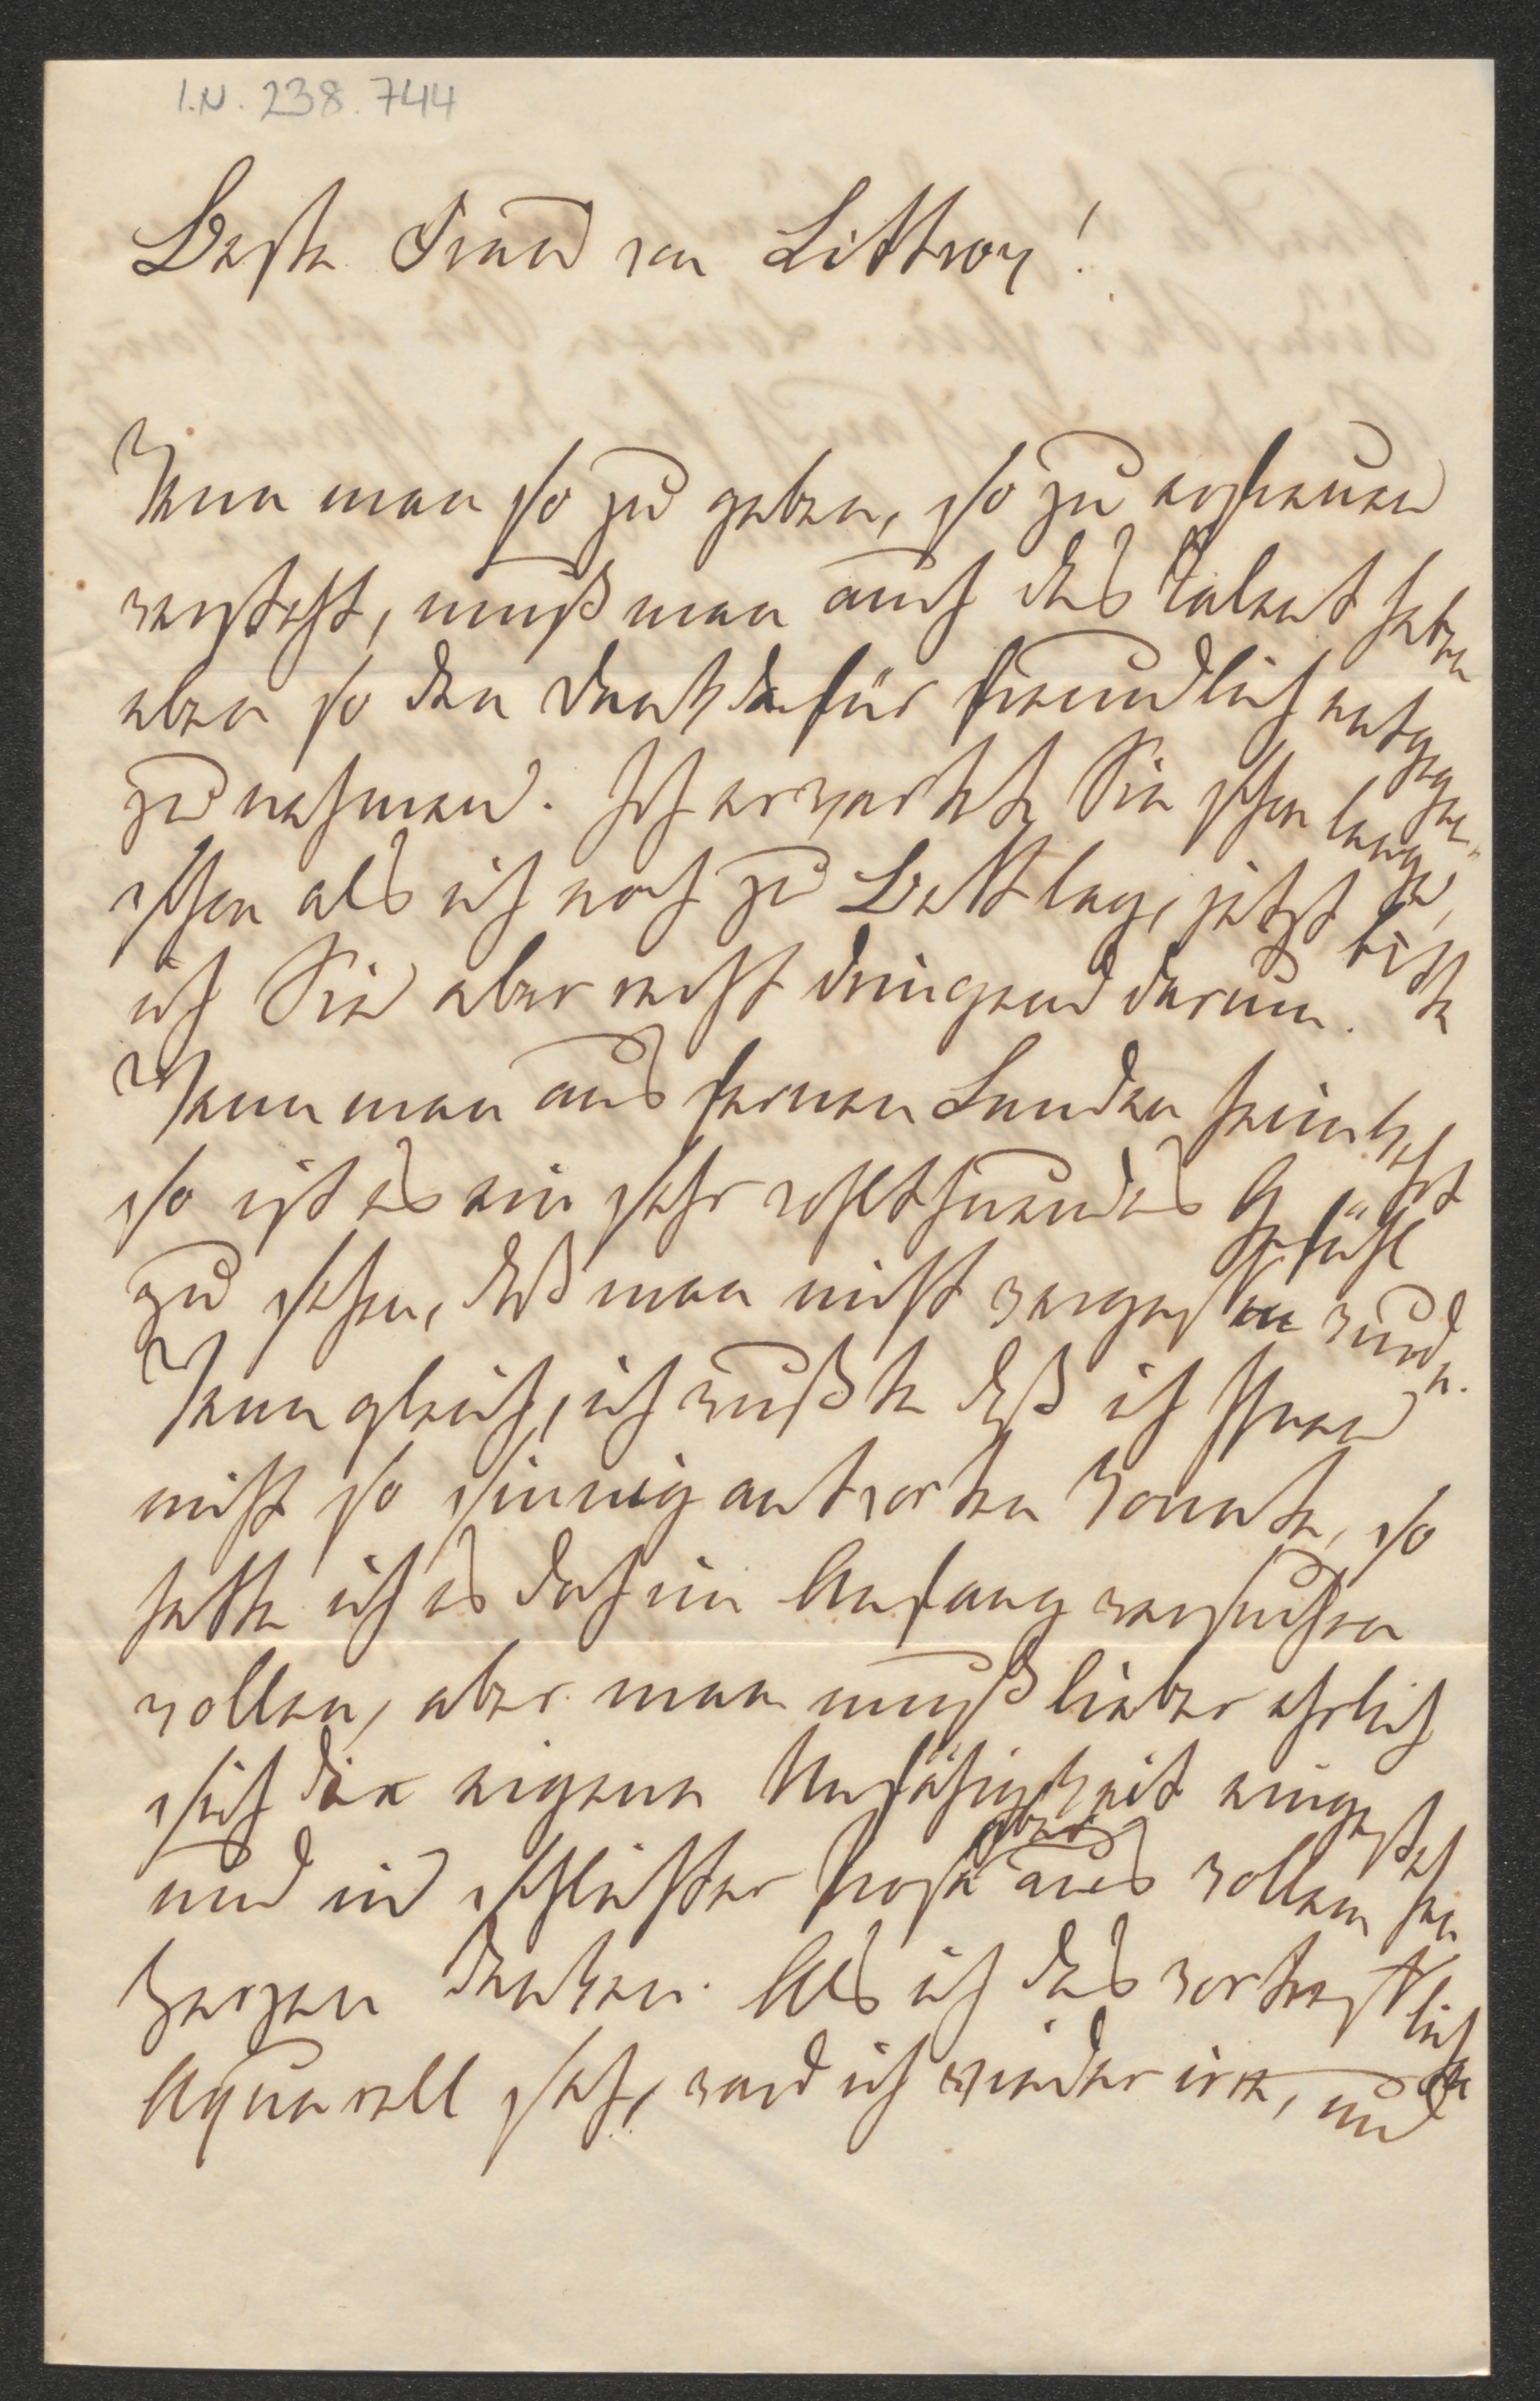 I.N. 238.744
Beste Frau von Littrow!
Wenn man so zu geben, so zu erfreuen
versteht, muß man auch das Talent haben
eben so den Dank dafür freundlich entgegen
zu nehmen. Ich erwartete Sie schon lange,
schon als ich noch zu Bett lag, jetzt bitte
ich Sie aber recht dringend darum.
Wenn man aus fernen Landen heimkehrt
so ist es ein sehr wohlthuendes Gefühl
zu sehen, daß man nicht vergessen wurde.
Wenn gleich, ich wußte daß ich Ihnen
nicht so sinnig antworten konnte, so
hatte ich es doch im Anfang versuchen
wollen, aber man muß lieber ehrlich
sich die eigene Unfähigkeit eingestehen
und in schlichter Prosa aber aus vollem
Herzen danken. Als ich das vortreffliche
Aquarell sah, ward ich wieder irre, und